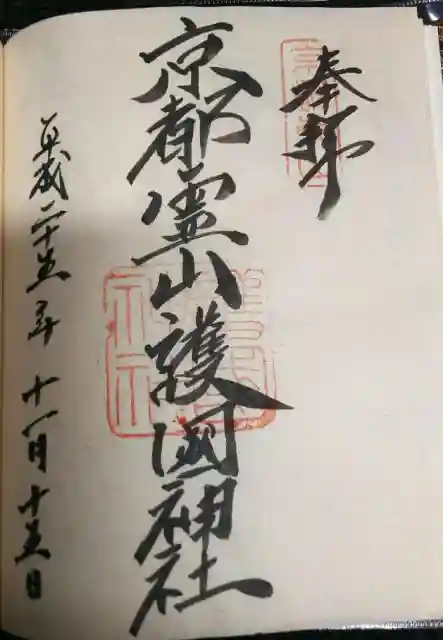 奉拝
京都霊山護國神社
平成二十五年 十一月 十五日